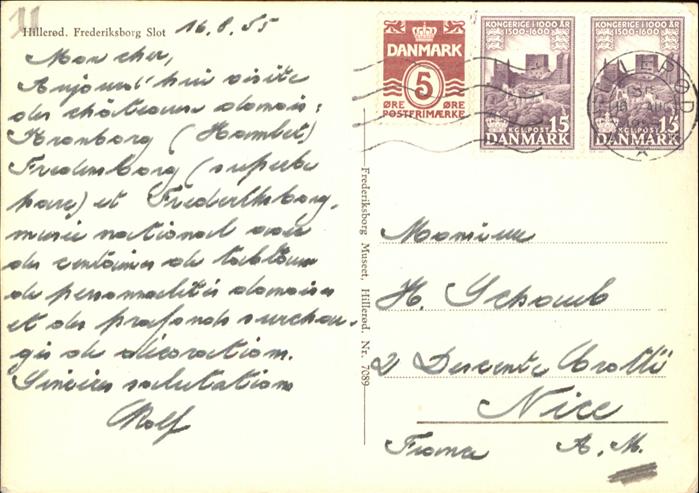 Hillerød. Frederiksborg Slot 16.8.55
Mon cher,
Aujourd'hui visite
des châteaux danois:
Kronborg (Hamlet)
Fredensborg (superbe
parc) et Frederiksborg,
musée national avec
des centaines de tableaux
de personnalités danoises
et des plafonds surchar-
gés de décorations.
Sincères salutations
Rolf
DANMARK
5
ØRE ØRE
POSTFRIMÆRKE
KONGERIGE I 1000 ÅR
1500-1600
KGL.POST 15
DANMARK
KONGERIGE I 1000 ÅR
1500-1600
KGL.POST 15
DANMARK
Frederiksborg Museet, Hillerød. Nr. 7089
Monsieur
H. Schaub
2 Descente Crotti
Nice
France A.M.